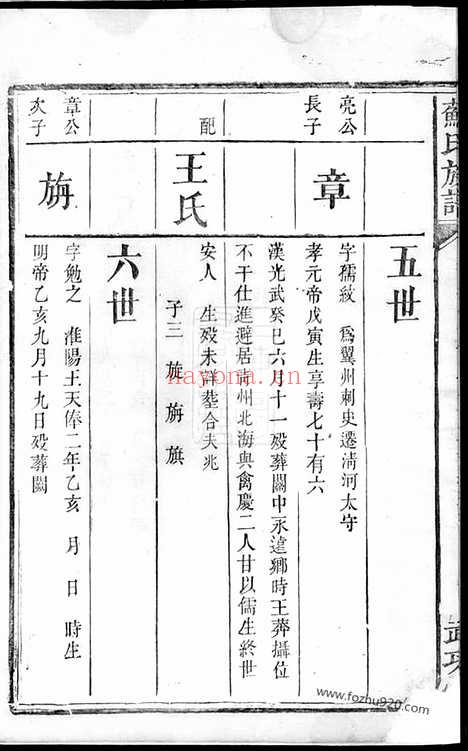 蘇氏族譜
五世
亮公長子
章
字孺紋 為翼州刺史遷清河太守
孝元帝戊寅生享壽七十有六
漢光武癸巳六月十一歿葬關中永違鄉時王莽攝位
不干仕進避居青州北海與禽慶二人甘以儒生終世
配
王氏
安人 生歿未詳塟合夫兆
子三 旋旃旗
六世
章公次子
旃
字勉之 淮陽王天俸二年乙亥 月 日 時生
明帝乙亥九月十九日歿葬關
武功
hayona.com
www.fozhu920.com